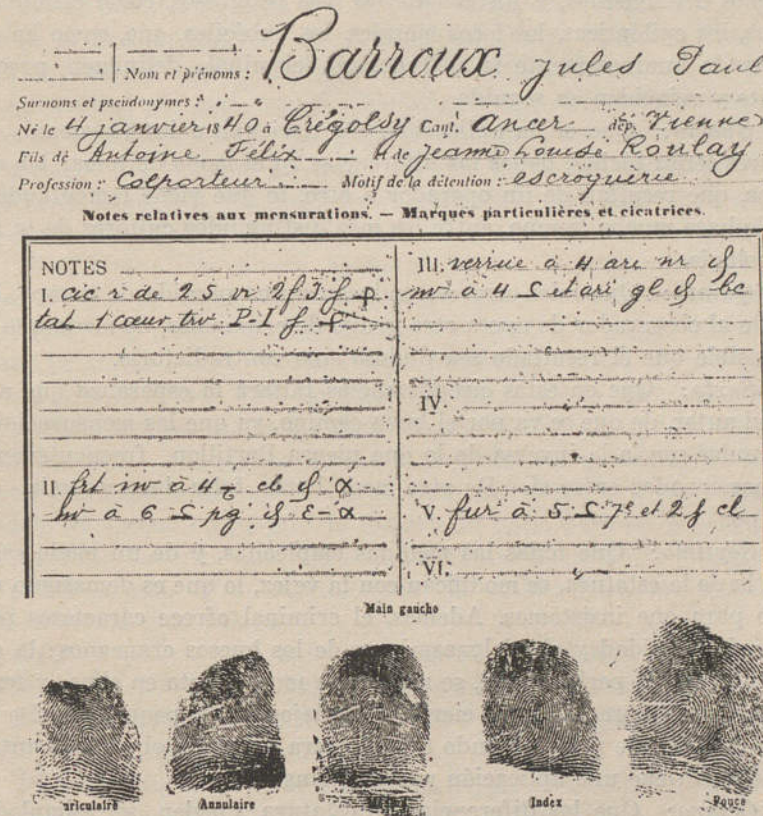 Nom et prénoms : Barroux Jules Paul
Surnoms et pseudonymes :
Né le 4 janvier 1840 à Crégolsy Cant. Ancer dép. Vienne
Fils de Antoine Félix et de Jeanne Louise Roulay
Profession : Colporteur Motif de la détention : escroquerie
Notes relatives aux mensurations. — Marques particulières et cicatrices.
NOTES
I. cic r de 2 5 vr 2 f 3 f
tat 1 cœur trv P-I f
II. frt nv à 4 cb
nv à 6 pg ε-α
III. verrue à 4 arc nr
nv à 4 et arc gl bc
IV.
V. fur à 5 7e et 2 f cl
VI.
Main gauche
uriculaire Annulaire Index Pouce